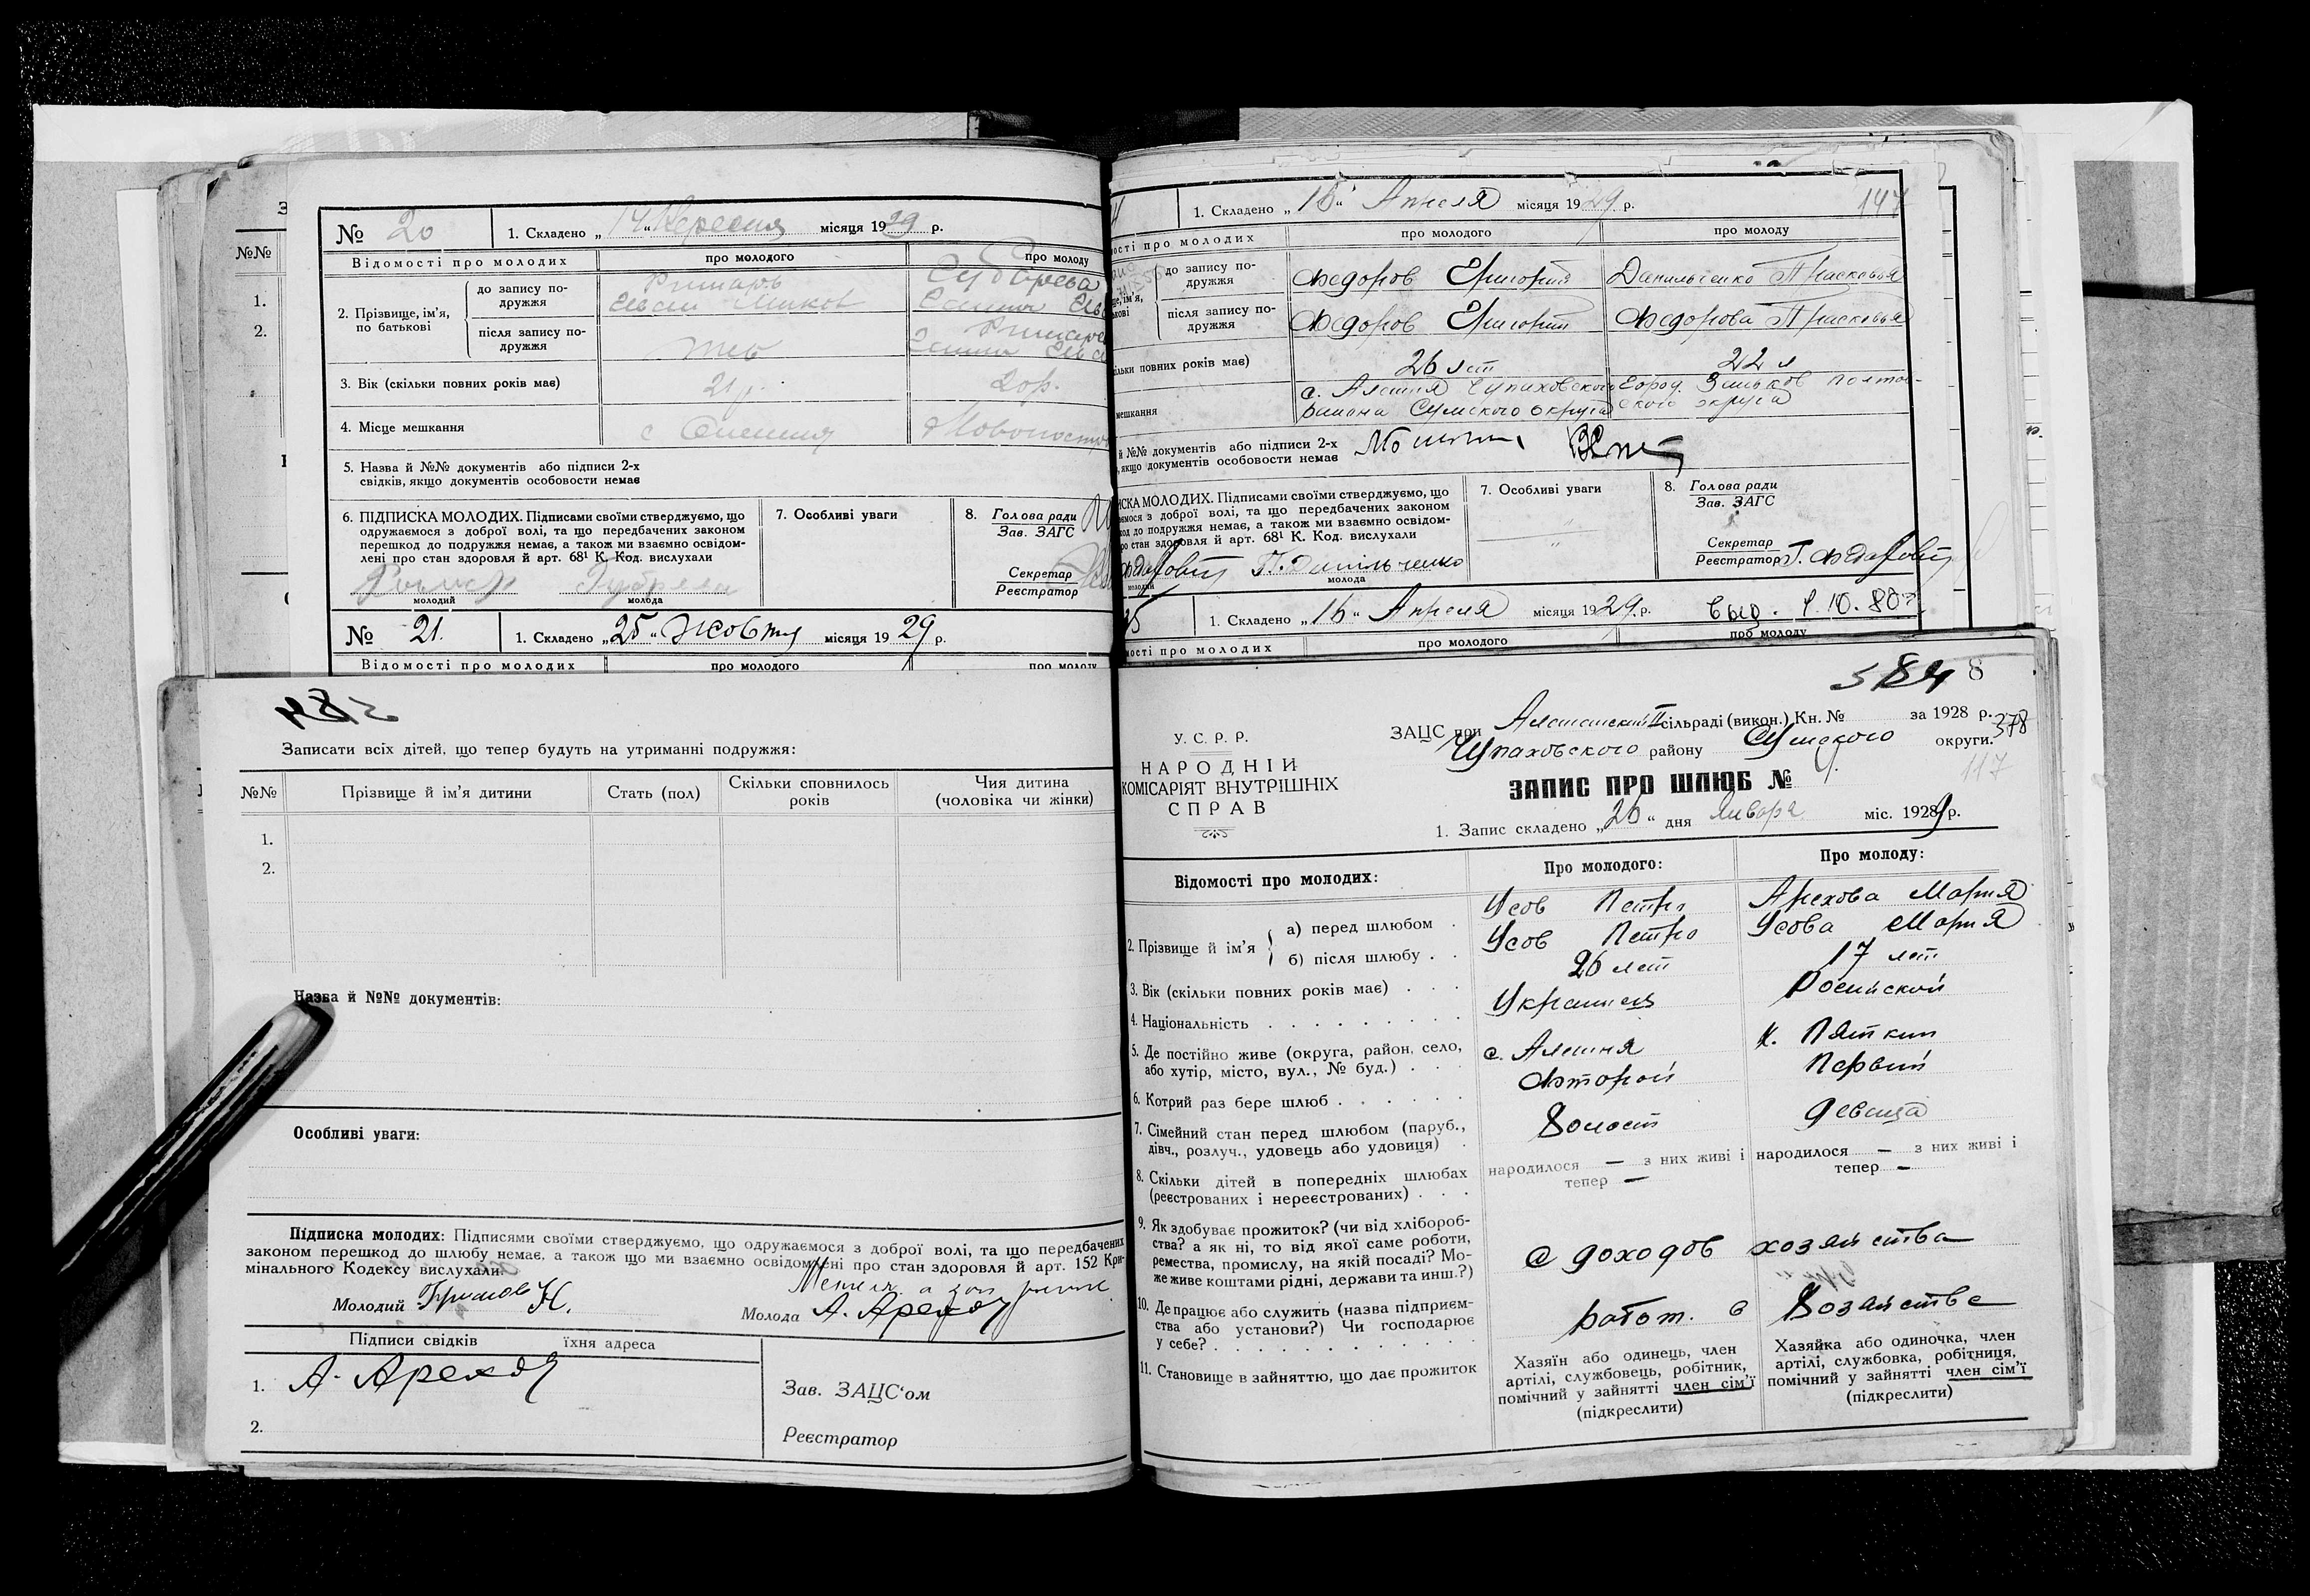 № 20
1. Складено „14“ Вересня місяця 1929 р.
Відомості про молодих
про молодого
про молоду
2. Прізвище, ім'я, по батькові
до запису подружжя
Иван
після запису подружжя
3. Вік (скільки повних років має)
21 р.
20 р.
4. Місце мешкання
с
5. Назва й №№ документів або підписи 2-х
свідків, якщо документів особовости немає
6. ПІДПИСКА МОЛОДИХ. Підписами своїми стверджуємо, що
одружаємося з доброї волі, та що передбачених законом
перешкод до подружжя немає, а також ми взаємно освідом-
лені про стан здоровля й арт. 68¹ К. Код. вислухали
молодий
молода
7. Особливі уваги
8. Голова ради
Зав. ЗАГС
Секретар
Реєстратор
№ 21.
1. Складено „25“ Жовтня місяця 1929 р.
Відомості про молодих
про молодого
про молоду
№№
1.
2.
Записати всіх дітей, що тепер будуть на утриманні подружжя:
№№
Прізвище й ім'я дитини
Стать (пол)
Скільки сповнилось
років
Чия дитина
(чоловіка чи жінки)
1.
2.
Назва й №№ документів:
Особливі уваги:
Підписка молодих: Підписями своїми стверджуємо, що одружаємося з доброї волі, та що передбачених
законом перешкод до шлюбу немає, а також що ми взаємно освідомлені про стан здоровля й арт. 152 Кри-
мінального Кодексу вислухали.
Молодий
Молода А. Арехов
Підписи свідків
їхня адреса
1. А. Арехов
2.
Зав. ЗАЦС'ом
Реєстратор
1. Складено „16“ Апреля місяця 1929 р.
147
ості про молодих
про молодого
про молоду
до запису по-
дружжя
Федоров Григорий
Данильченко Прасковья
після запису по-
дружжя
Федоров Григорий
Федорова Прасковья
кільки повних років має)
26 лет
22 л
мешкання
с. Алешня Чупаховского
района Сумского округа
Город. Зиньков Полтав-
ского округа
й №№ документів або підписи 2-х
, якщо документів особовости немає
ИСКА МОЛОДИХ. Підписами своїми стверджуємо, що
ємося з доброї волі, та що передбачених законом
код до подружжя немає, а також ми взаємно освідом-
ро стан здоровля й арт. 68¹ К. Код. вислухали
П. Данільченко
молодий
молода
7. Особливі уваги
8. Голова ради
Зав. ЗАГС
Секретар
Реєстратор
1. Складено „16“ Апреля місяця 1929 р.
выд. 1.10.80г.
ості про молодих
про молодого
про молоду
584
8
У. С. Р. Р.
НАРОДНІЙ
КОМІСАРІЯТ ВНУТРІШНІХ
СПРАВ
ЗАЦС при Алешанский II сільраді (викон.) Кн. № за 1928 р.
378
Чупаховского району Сумского округи.
ЗАПИС ПРО ШЛЮБ № 9.
117
1. Запис складено „26“ дня Января міс. 1929 р.
Відомості про молодих:
Про молодого:
Про молоду:
2. Прізвище й ім'я
а) перед шлюбом .
Усов Петро
Арехова Мария
б) після шлюбу . .
Усов Петро
Усова Мария
3. Вік (скільки повних років має) . . .
26 лет
17 лет
4. Національність . . . . . . . . .
Украинец
Российской
5. Де постійно живе (округа, район, село,
або хутір, місто, вул., № буд.) . . .
с. Алешня
х. Пяткин
6. Котрий раз бере шлюб . . . . . .
Второй
Первый
7. Сімейний стан перед шлюбом (паруб.,
дівч., розлуч., удовець або удовиця) .
Холост
девица
8. Скільки дітей в попередніх шлюбах
(реєстрованих і нереєстрованих) . . .
народилося — з них живі і
тепер —
народилося — з них живі і
тепер —
9. Як здобуває прожиток? (чи від хлібороб-
ства? а як ні, то від якої саме роботи,
ремества, промислу, на якій посаді? Мо-
же живе коштами рідні, держави та инш.?)
с доходов хозяйства
10. Де працює або служить (назва підприєм-
ства або установи?) Чи господарює
у себе? . . . . . . . . . . .
работ. в Хозяйстве
11. Становище в зайняттю, що дає прожиток
Хазяїн або одинець, член
артілі, службовець, робітник,
помічний у зайнятті член сім'ї
(підкреслити)
Хазяйка або одиночка, член
артілі, службовка, робітниця,
помічний у зайнятті член сім'ї
(підкреслити)